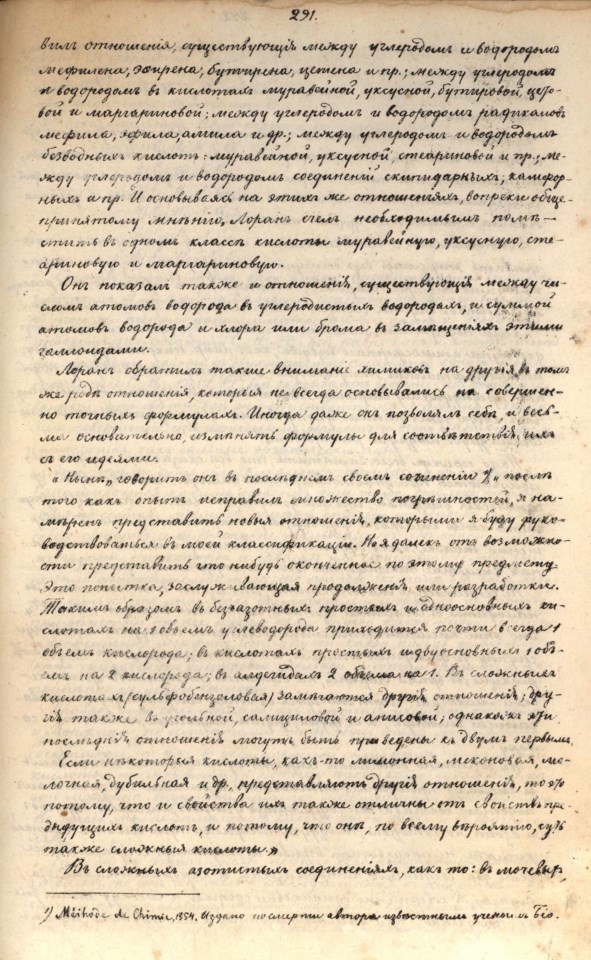 291.
вилъ отношенія, существующія между углеродомъ и водородомъ
мефилена, эфирена, бутирена, цетена и пр.; между углеродомъ
и водородомъ въ кислотахъ муравейной, уксусной, бутировой, церо-
вой и маргариновой; между углеродомъ и водородомъ радикаловъ
мефила, эфила, амила и др.; между углеродомъ и водородомъ
безводныхъ кислотъ: муравейной, уксусной, стеариновой и пр.; ме-
жду углеродомъ и водородомъ соединеній скипидарныхъ, камфор-
ныхъ и пр. И основываясь на этихъ же отношеніяхъ, вопреки обще-
принятому мнѣнію, Лоранъ счелъ необходимымъ помѣ-
стить въ одномъ классѣ кислоты муравейную, уксусную, сте-
ариновую и маргариновую.
Онъ показалъ также и отношенія, существующія между чи-
сломъ атомовъ водорода въ углеродистыхъ водородахъ, и суммой
атомовъ водорода и хлора или брома въ замѣщеніяхъ этими
галлоидами.
Лоранъ обратилъ также вниманіе химиковъ на другія въ томъ
же родѣ отношенія, которыя не всегда основывались на совершен-
но точныхъ формулахъ. Иногда даже онъ позволялъ себѣ, и весь-
ма основательно, измѣнять формулы для соотвѣтствія ихъ
съ его идеями.
"Нынѣ," говоритъ онъ въ послѣднемъ своемъ сочиненіи ¹), "послѣ
того какъ опытъ исправилъ множество погрѣшностей, я на-
мѣренъ представить новыя отношенія, которыми я буду руко-
водствоваться въ моей классификаціи. Но я далекъ отъ возможно-
сти представить что нибудь оконченное по этому предмету.
Это попытка, заслуживающая продолженія или разработки.
Такимъ образомъ въ безъазотныхъ простыхъ и одноосновныхъ ки-
слотахъ на 1 объемъ углеводорода приходится почти всегда 1
объемъ кислорода; въ кислотахъ простыхъ и двуосновныхъ 1 объ-
емъ на 2 кислорода; въ алдегидахъ 2 объема на 1. Въ сложныхъ
кислотахъ (сульфобензоловая) замѣчаются другія отношенія; дру-
гія также въ угольной, салициловой и анисовой; однакожъ эти
послѣднія отношенія могутъ быть приведены къ двумъ первымъ.
Если нѣкоторыя кислоты, какъ-то лимонная, меконовая, мо-
лочная, дубильная и др. представляютъ другія отношенія, то это
потому, что и свойства ихъ также отличны отъ свойствъ пре-
дыдущихъ кислотъ, и потому, что онѣ, по всему вѣроятію, суть
также сложныя кислоты."
Въ сложныхъ азотистыхъ соединеніяхъ, какъ то: въ мочевыхъ,
¹) Méthode de Chimie, 1854. Издано по смерти автора извѣстнымъ ученымъ Біо.